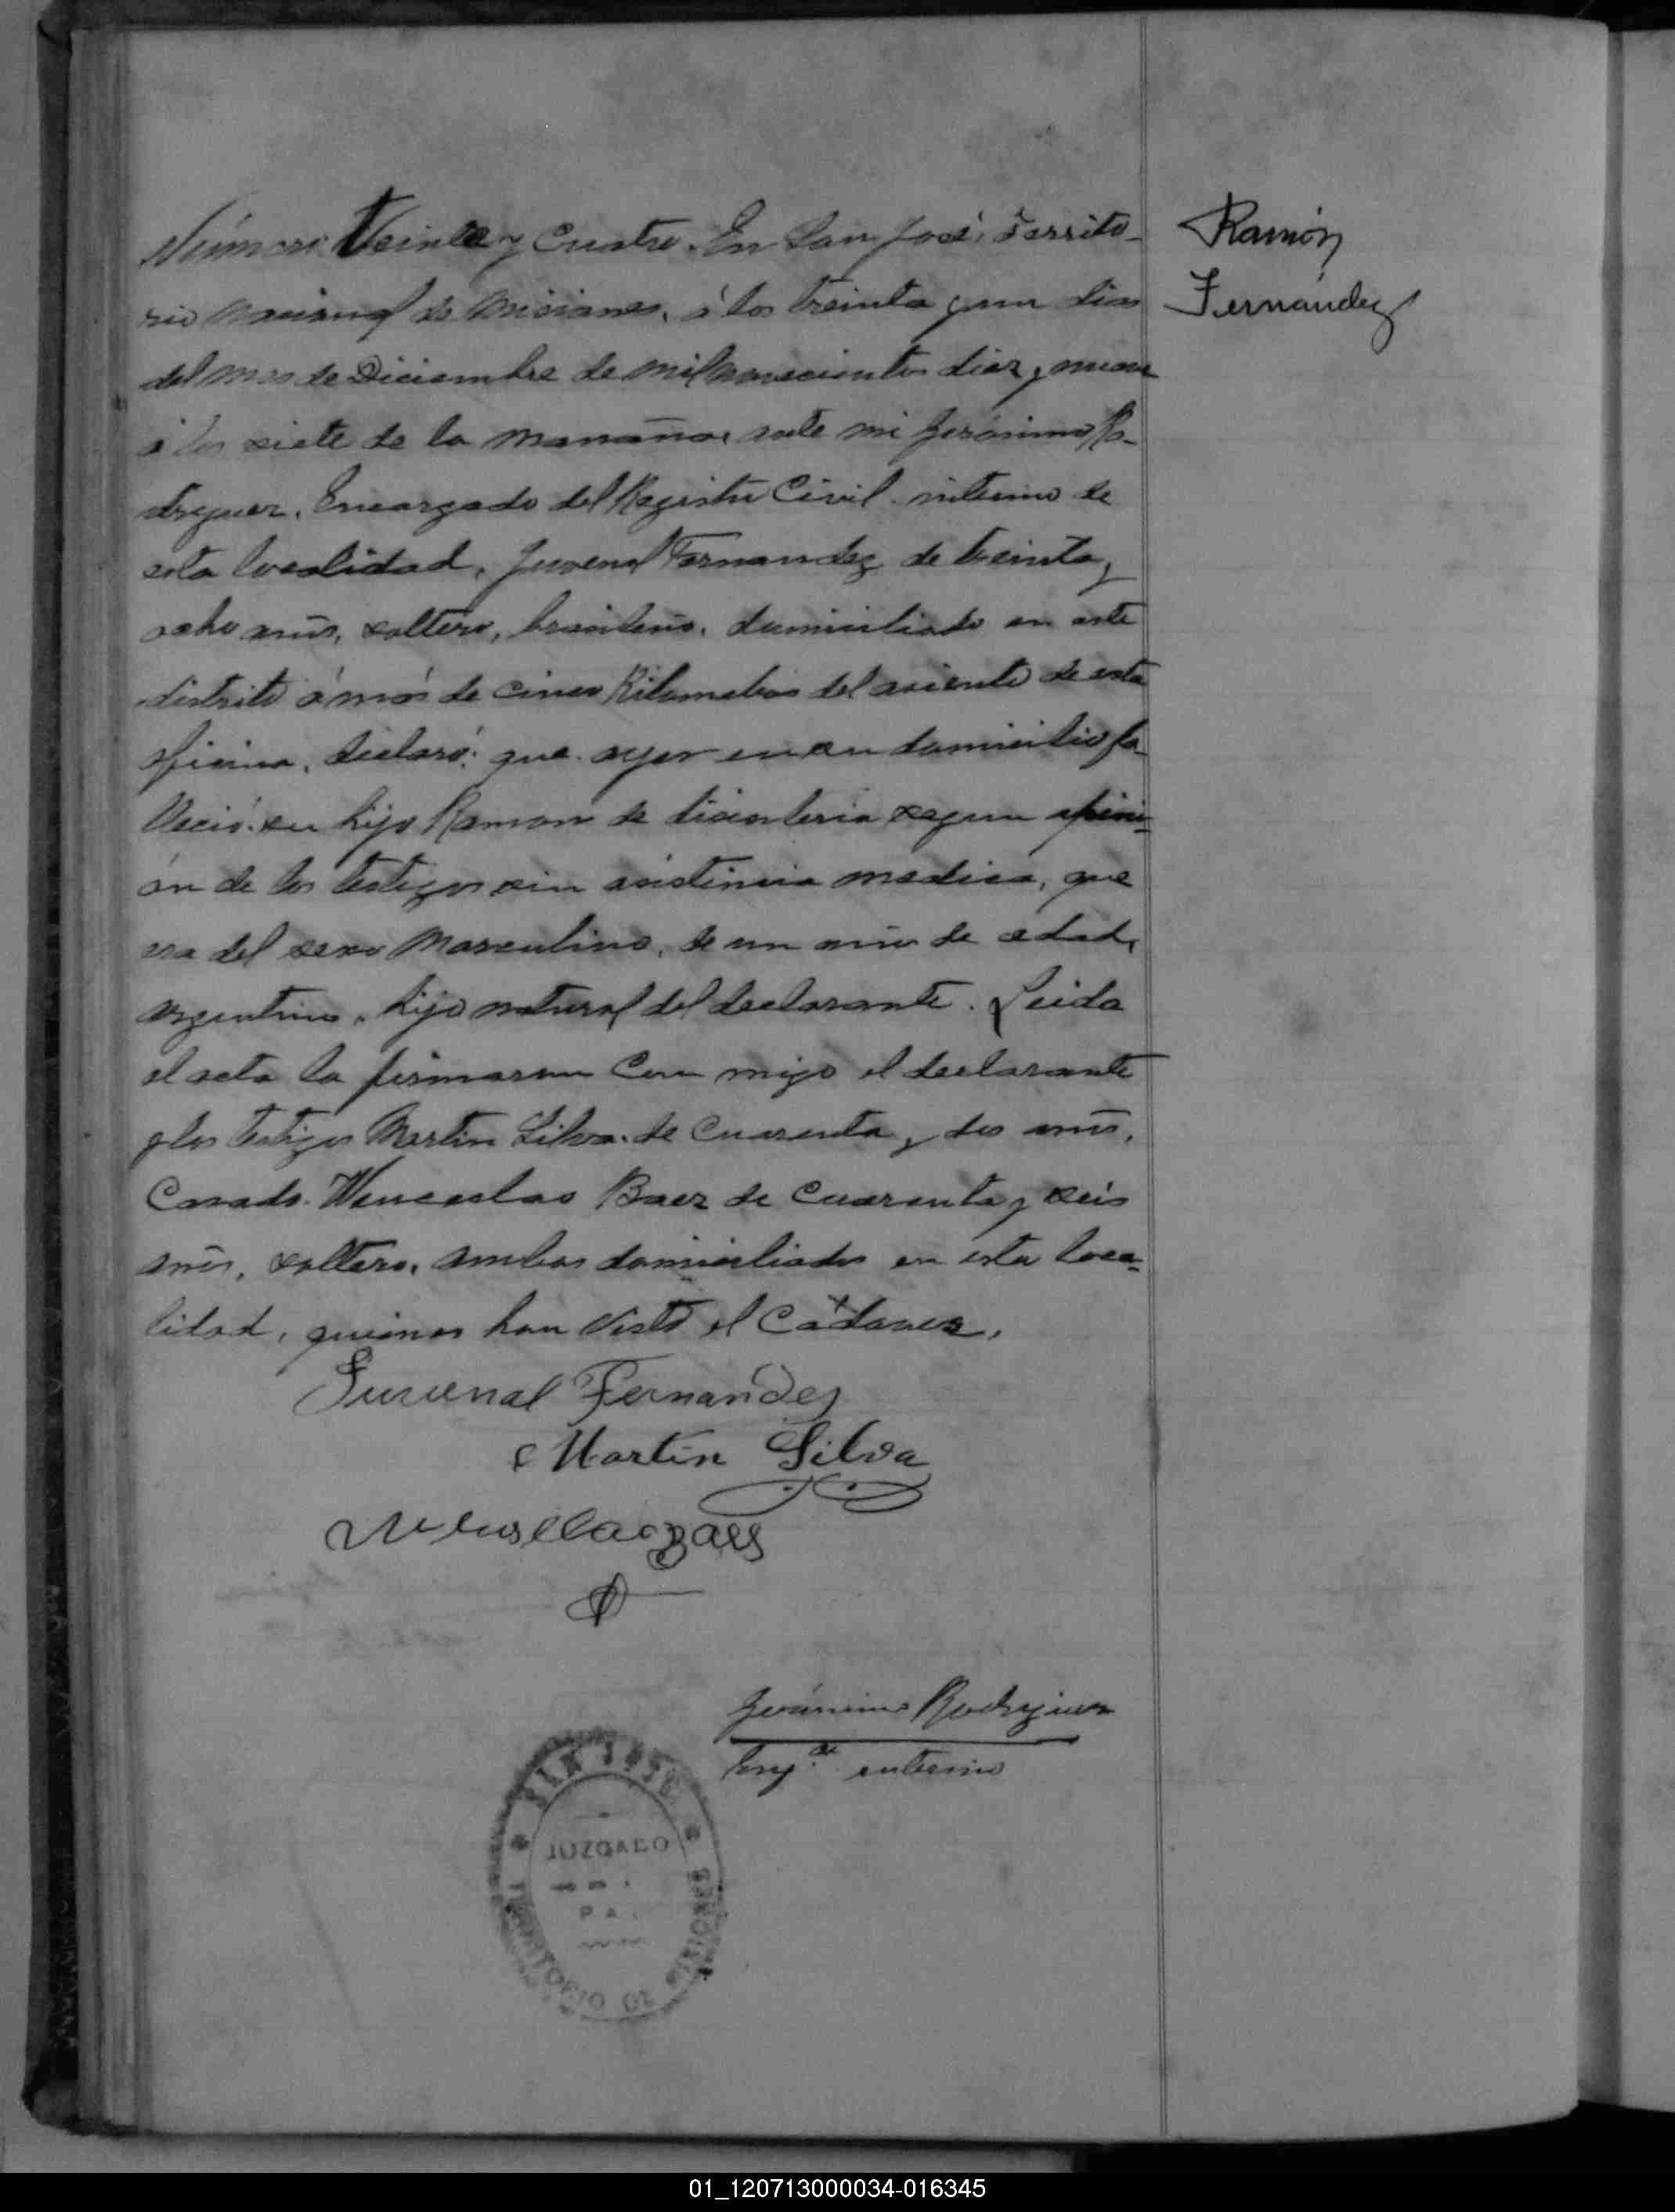 Número Veinte y Cuatro. En San José, Territo-
rio Nacional de Misiones, á los treinta y un dias
del mes de Diciembre de mil novecientos diez y nueve
á las siete de la mañana, ante mi Jerónimo Ro-
driguez, Encargado del Registro Civil interino de
esta localidad, Juvenal Fernandez de treinta y
ocho años, soltero, brasileño, domiciliado en este
distrito á mas de cinco Kilometros del asiento de esta
oficina, declaró: que ayer en su domicilio fa-
lleció su hijo Ramon de disenteria segun opini-
ón de los testigos sin asistencia medica, que
era del sexo Masculino, de un año de edad,
argentino, hijo natural del declarante. Leida
el acta la firmaron con migo el declarante
y los testigos Martin Silva de Cuarenta y dos años,
Casado. Wenceslao Baez de Cuarenta y seis
años, soltero, ambos domiciliados en esta loca-
lidad, quienes han visto el Cadaver.
Juvenal Fernandez
Martin Silva
Jerónimo Rodriguez
Eng.do interino
SAN JOSE
JUZGADO
DE
PAZ
TERRITORIO DE MISIONES
Ramón
Fernández
01_120713000034-016345